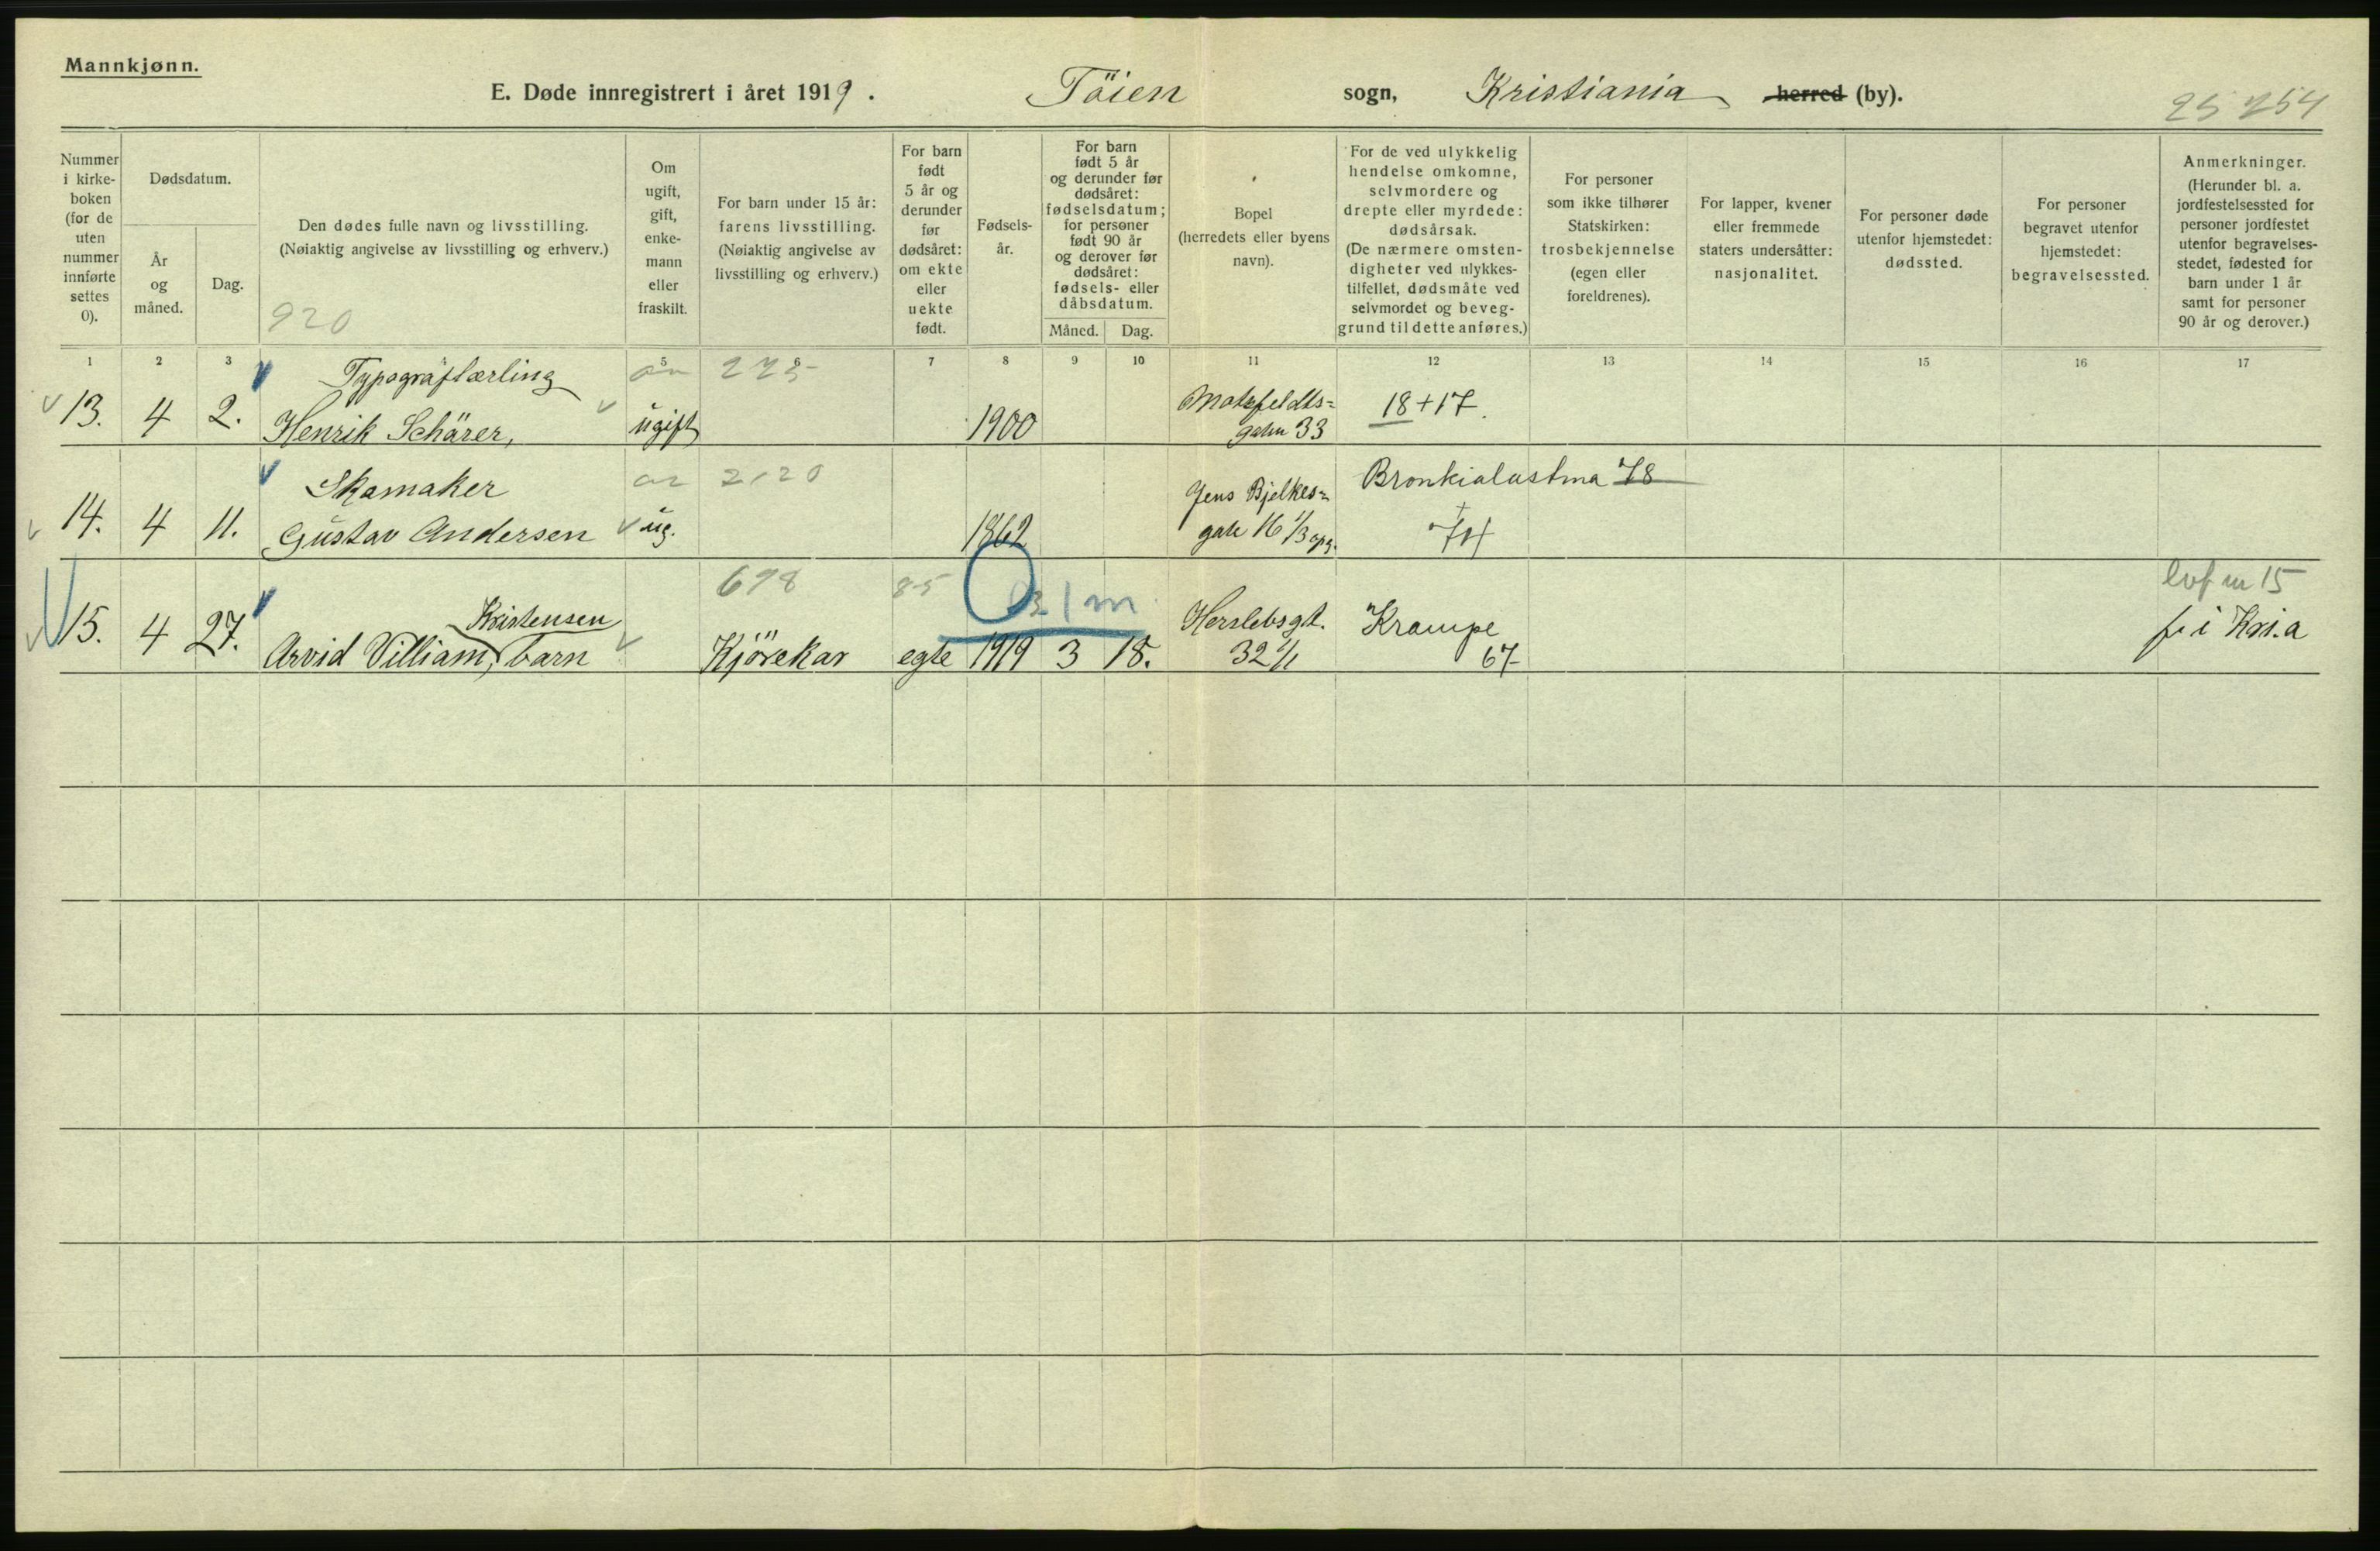 Mannkjønn.
E. Døde innregistrert i året 1919. Töien sogn, Kristiania herred (by).
25 254
Nummer i kirke-boken (for de uten nummer innførte settes 0).
Dødsdatum.
År og måned.
Dag.
Den dødes fulle navn og livsstilling.
(Nøiaktig angivelse av livsstilling og erhverv.)
920
Om ugift, gift, enke-mann eller fraskilt.
For barn under 15 år: farens livsstilling. (Nøiaktig angivelse av livsstilling og erhverv.)
For barn født 5 år og derunder før dødsåret: om ekte eller uekte født.
Fødsels-år.
For barn født 5 år og derunder før dødsåret: fødselsdatum; for personer født 90 år og derover før dødsåret: fødsels- eller dåbsdatum.
Måned.
Dag.
Bopel (herredets eller byens navn).
For de ved ulykkelig hendelse omkomne, selvmordere og drepte eller myrdede: dødsårsak. (De nærmere omsten-digheter ved ulykkes-tilfellet, dødsmåte ved selvmordet og beveg-grund til dette anføres.)
For personer som ikke tilhører Statskirken: trosbekjennelse (egen eller foreldrenes).
For lapper, kvener eller fremmede staters undersåtter: nasjonalitet.
For personer døde utenfor hjemstedet: dødssted.
For personer begravet utenfor hjemstedet: begravelsessted.
Anmerkninger. (Herunder bl. a. jordfestelsessted for personer jordfestet utenfor begravelses-stedet, fødested for barn under 1 år samt for personer 90 år og derover.)
1 2 3 5 6 7 8 9 10 11 12 13 14 15 16 17
Typograflærling
13. 4 2. Henrik Schärer, ugift 1900 33 18+17.
Skomaker 2120
14. 4 11. Gustav Andersen ug. 1862 Jens Bjelkes=
gate 16 Bronkialastma 78
698 85 1 m
Kristensen
15. 4 27. Arvid Villiam, barn Kjörekar egte 1919 3 18. Herslebsgt.
32 Krampe
67
15
f. i Kri.a